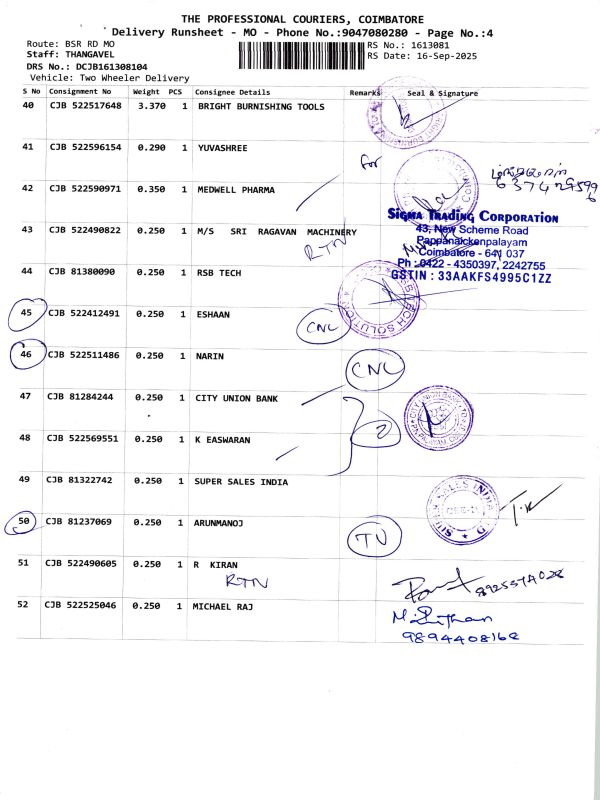 THE PROFESSIONAL COURIERS, COIMBATORE
Delivery Runsheet - MO - Phone No.:9047080280 - Page No.:4
Route: BSR RD MO
Staff: THANGAVEL
DRS No.: DCJB161308104
Vehicle: Two Wheeler Delivery
RS No.: 1613081
RS Date: 16-Sep-2025
S No Consignment No Weight PCS Consignee Details Remarks Seal & Signature
40 CJB 522517648 3.370 1 BRIGHT BURNISHING TOOLS
41 CJB 522596154 0.290 1 YUVASHREE
for
42 CJB 522590971 0.350 1 MEDWELL PHARMA
SIGMA TRADING CORPORATION
43, New Scheme Road
Pappanaickenpalayam
Coimbatore - 641 037
Ph : 0422 - 4350397, 2242755
GSTIN : 33AAKFS4995C1ZZ
43 CJB 522490822 0.250 1 M/S SRI RAGAVAN MACHINERY
RTN
44 CJB 81380090 0.250 1 RSB TECH
45 CJB 522412491 0.250 1 ESHAAN CNL
46 CJB 522511486 0.250 1 NARIN CNL
47 CJB 81284244 0.250 1 CITY UNION BANK
2
48 CJB 522569551 0.250 1 K EASWARAN
49 CJB 81322742 0.250 1 SUPER SALES INDIA
T.K
50 CJB 81237069 0.250 1 ARUNMANOJ TN
51 CJB 522490605 0.250 1 R KIRAN
RTN
52 CJB 522525046 0.250 1 MICHAEL RAJ
9894408162